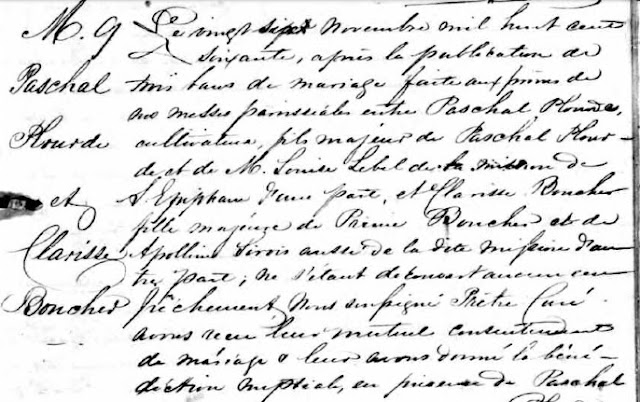 M. 9 Le vingt sept Novembre mil huit cent
soixante, après la publication de
Paschal trois bans de mariage faite aux prônes de
nos messes paroissiales entre Paschal Plourde,
Plourde cultivateur, fils majeur de Paschal Plour-
de et de M. Louise Lebel de la mission de
et St Epiphane d'une part, et Clarisse Boucher
fille majeure de Boucher et de
Clarisse Apolline Sirois aussi de la dite mission d'au
tre part; ne s'étant découvert aucun em
Boucher pêchement Nous soussigné Prêtre Curé
avons reçu leur mutuel consentement
de mariage & leur avons donné la béné-
diction nuptiale, en présence de Paschal